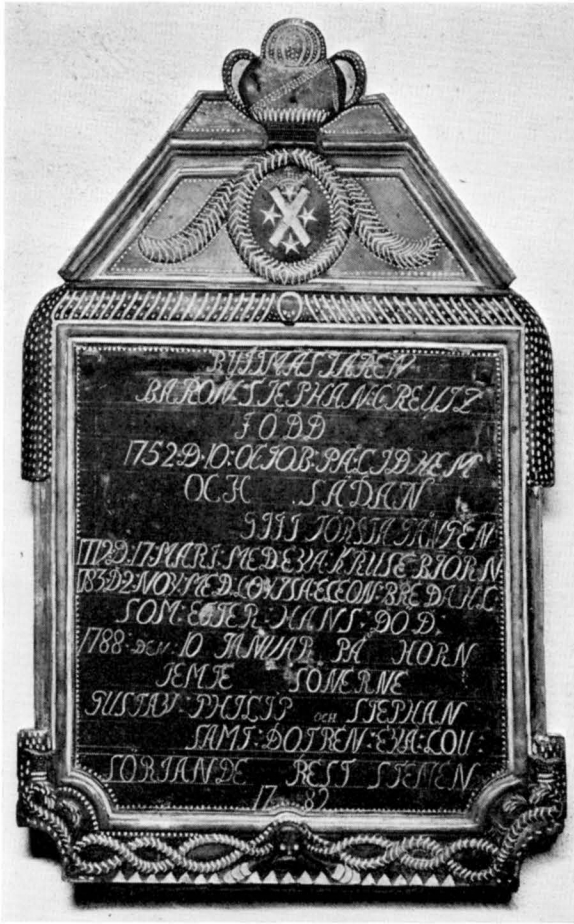 RYTTMÄSTAREN
BARON:STEPHAN:CREUTZ
FÖDD
1752·D·10:OCTOB:PÅ·LIDHEM
OCH SÄDAN
GIFT FÖRSTA GÅNGEN
1772D:17:MART:MED:EVA:KRUSEBJÖRN
1783:D2:NOV:MED:LOVISA
SOM:EFTER:HANS:DÖD:
1788:DEN:10 JANUAR PÅ HORN
JEMTE SÖNERNE
GUSTAV:PHILIP OCH STEPHAN
SAMT:DOTREN:EVA:LOU:
SÖRJANDE REST STENEN
1789